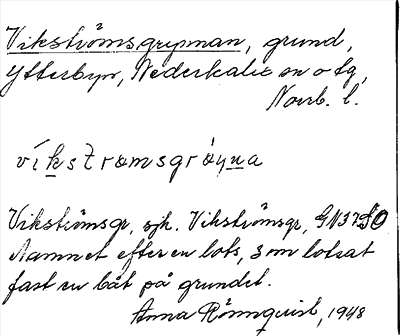 Vikströmsgrynnan, grund,
Ytterbyn, Nederkalix sn o tg,
Norrb. l.
víkstrœmsgrøyna
Vikströmsgr, sjk. Vikströmsgr, GN37SO
Namnet efter en lots, som lotsat
fast en båt på grundet.
Anna Rönnquist, 1948